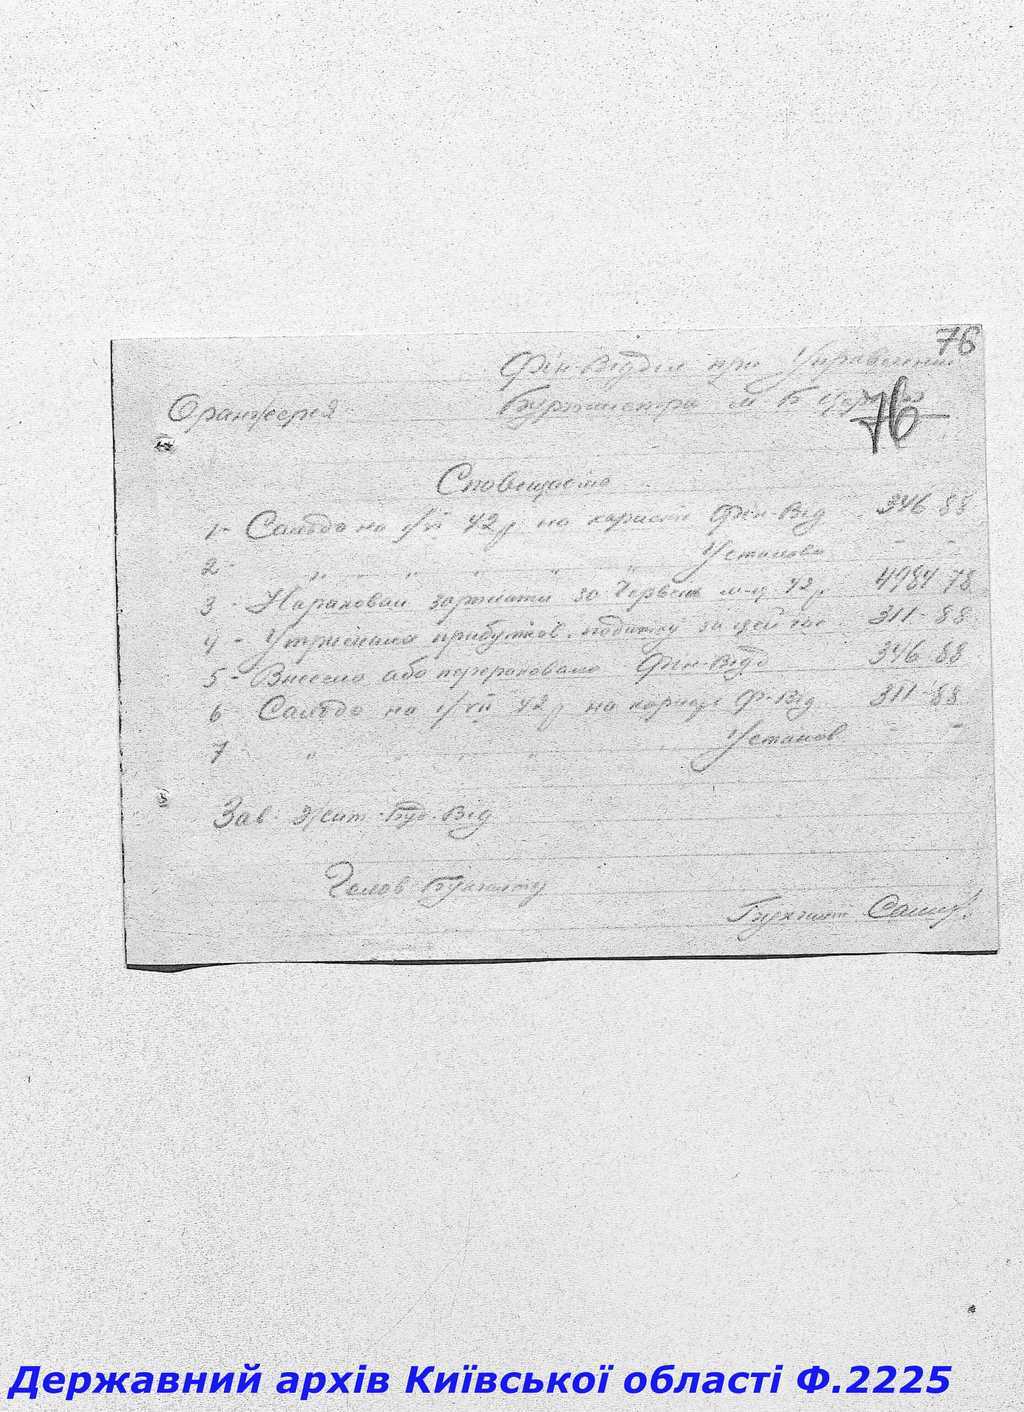 76
Фін-Відділ при Управлінні
Оранжерея
Бургмістра м Б Церкви
76
Сповіщаєто
1- Сальдо на 1/VI 42 р на користь Фін-Від 346-88
2- " " " " " Установи - -
3- Нарахован зарплати за Червень м-ц 42 р. 4984-78
4- Утримано прибутков. податку за цей час 311-88
5- Внесено або перераховано Фін-Відд 346-88
6 Сальдо на 1/VII 42 р на користь Ф-Від 311-88
7 " " " " Установ - -
Зав. Жит-Буд-Від
Голов Бухгалту
Бухгалт
Державний архів Київської області Ф.2225